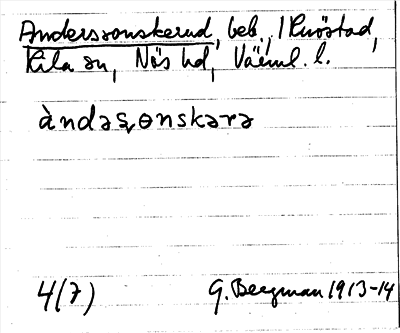 Anderssonskerud, beb., 1 Knöstad,
Kila sn, Näs hd, Värml. l.
àndəs̬ɵnskərə
4(7) G. Bergman 1913-14